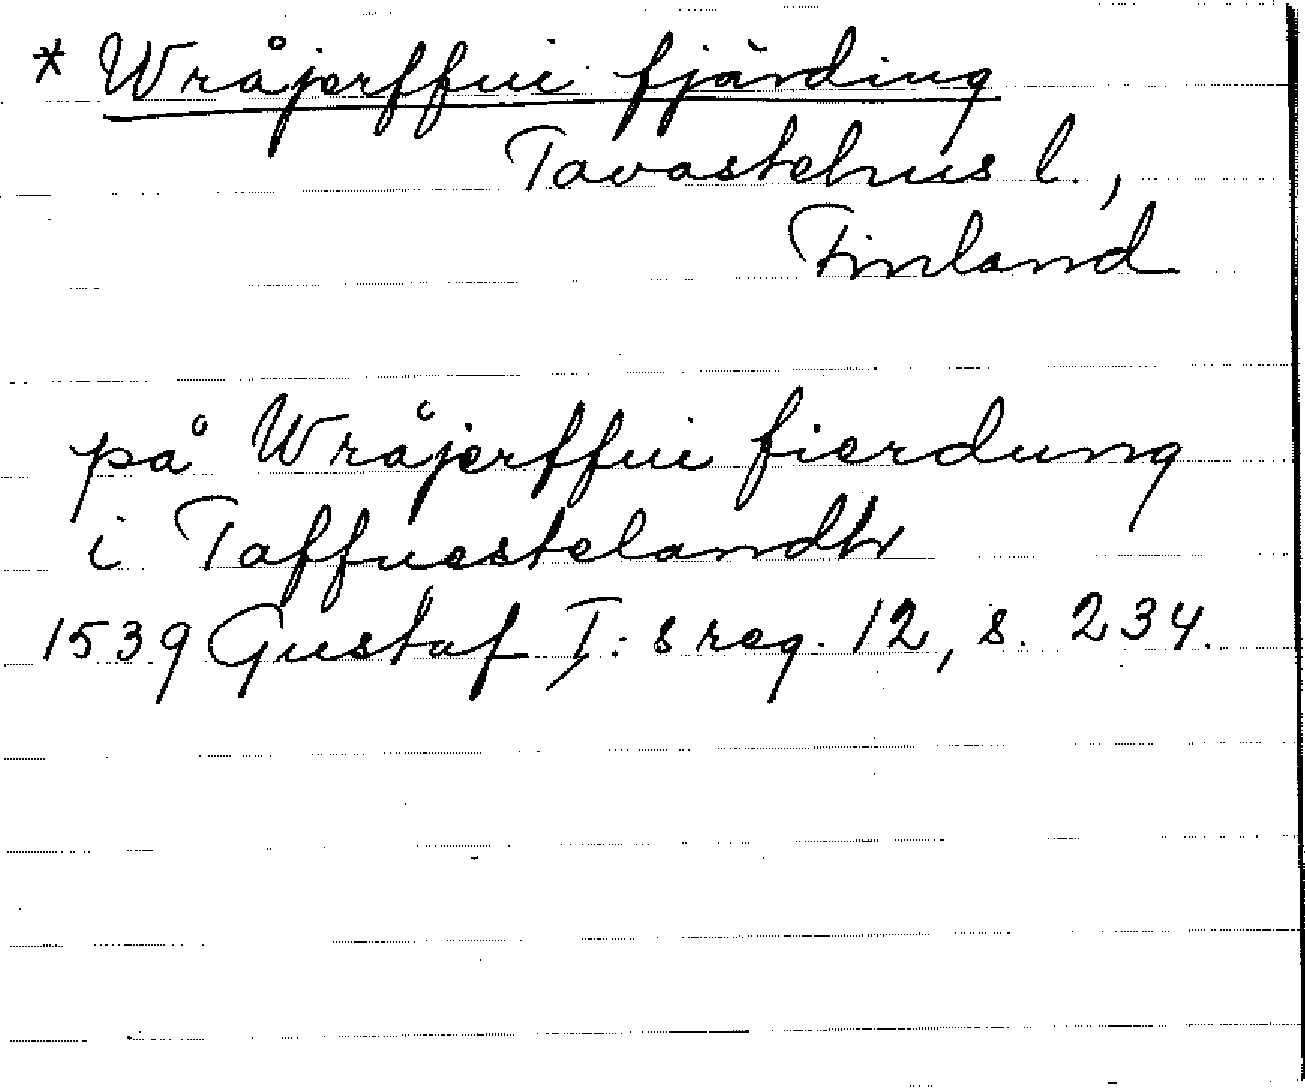 * Wråjerffui fjärding
Tavastehus l.,
Finland
på Wråjerffui fierdung
i Taffuestelandh
1539 Gustaf I:s reg. 12, s. 234.